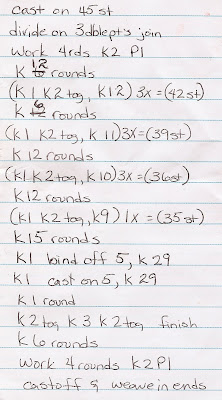 cast on 45 st
divide on 3 dblepts join
Work 4rds K2 P1
K 12 rounds
(K1 K2tog, K12) 3x = (42st)
K 6 rounds
(K1 K2tog, K 11) 3x = (39st)
K 12 rounds
(K1 K2tog, K10) 3x = (36st)
K12 rounds
(K1 K2tog, K9) 1x = (35st)
K15 rounds
K1 bind off 5, K 29
K1 cast on 5, K 29
K 1 round
K2tog K3 K2tog finish
K 6 rounds
Work 4 rounds K2P1
castoff & weave in ends